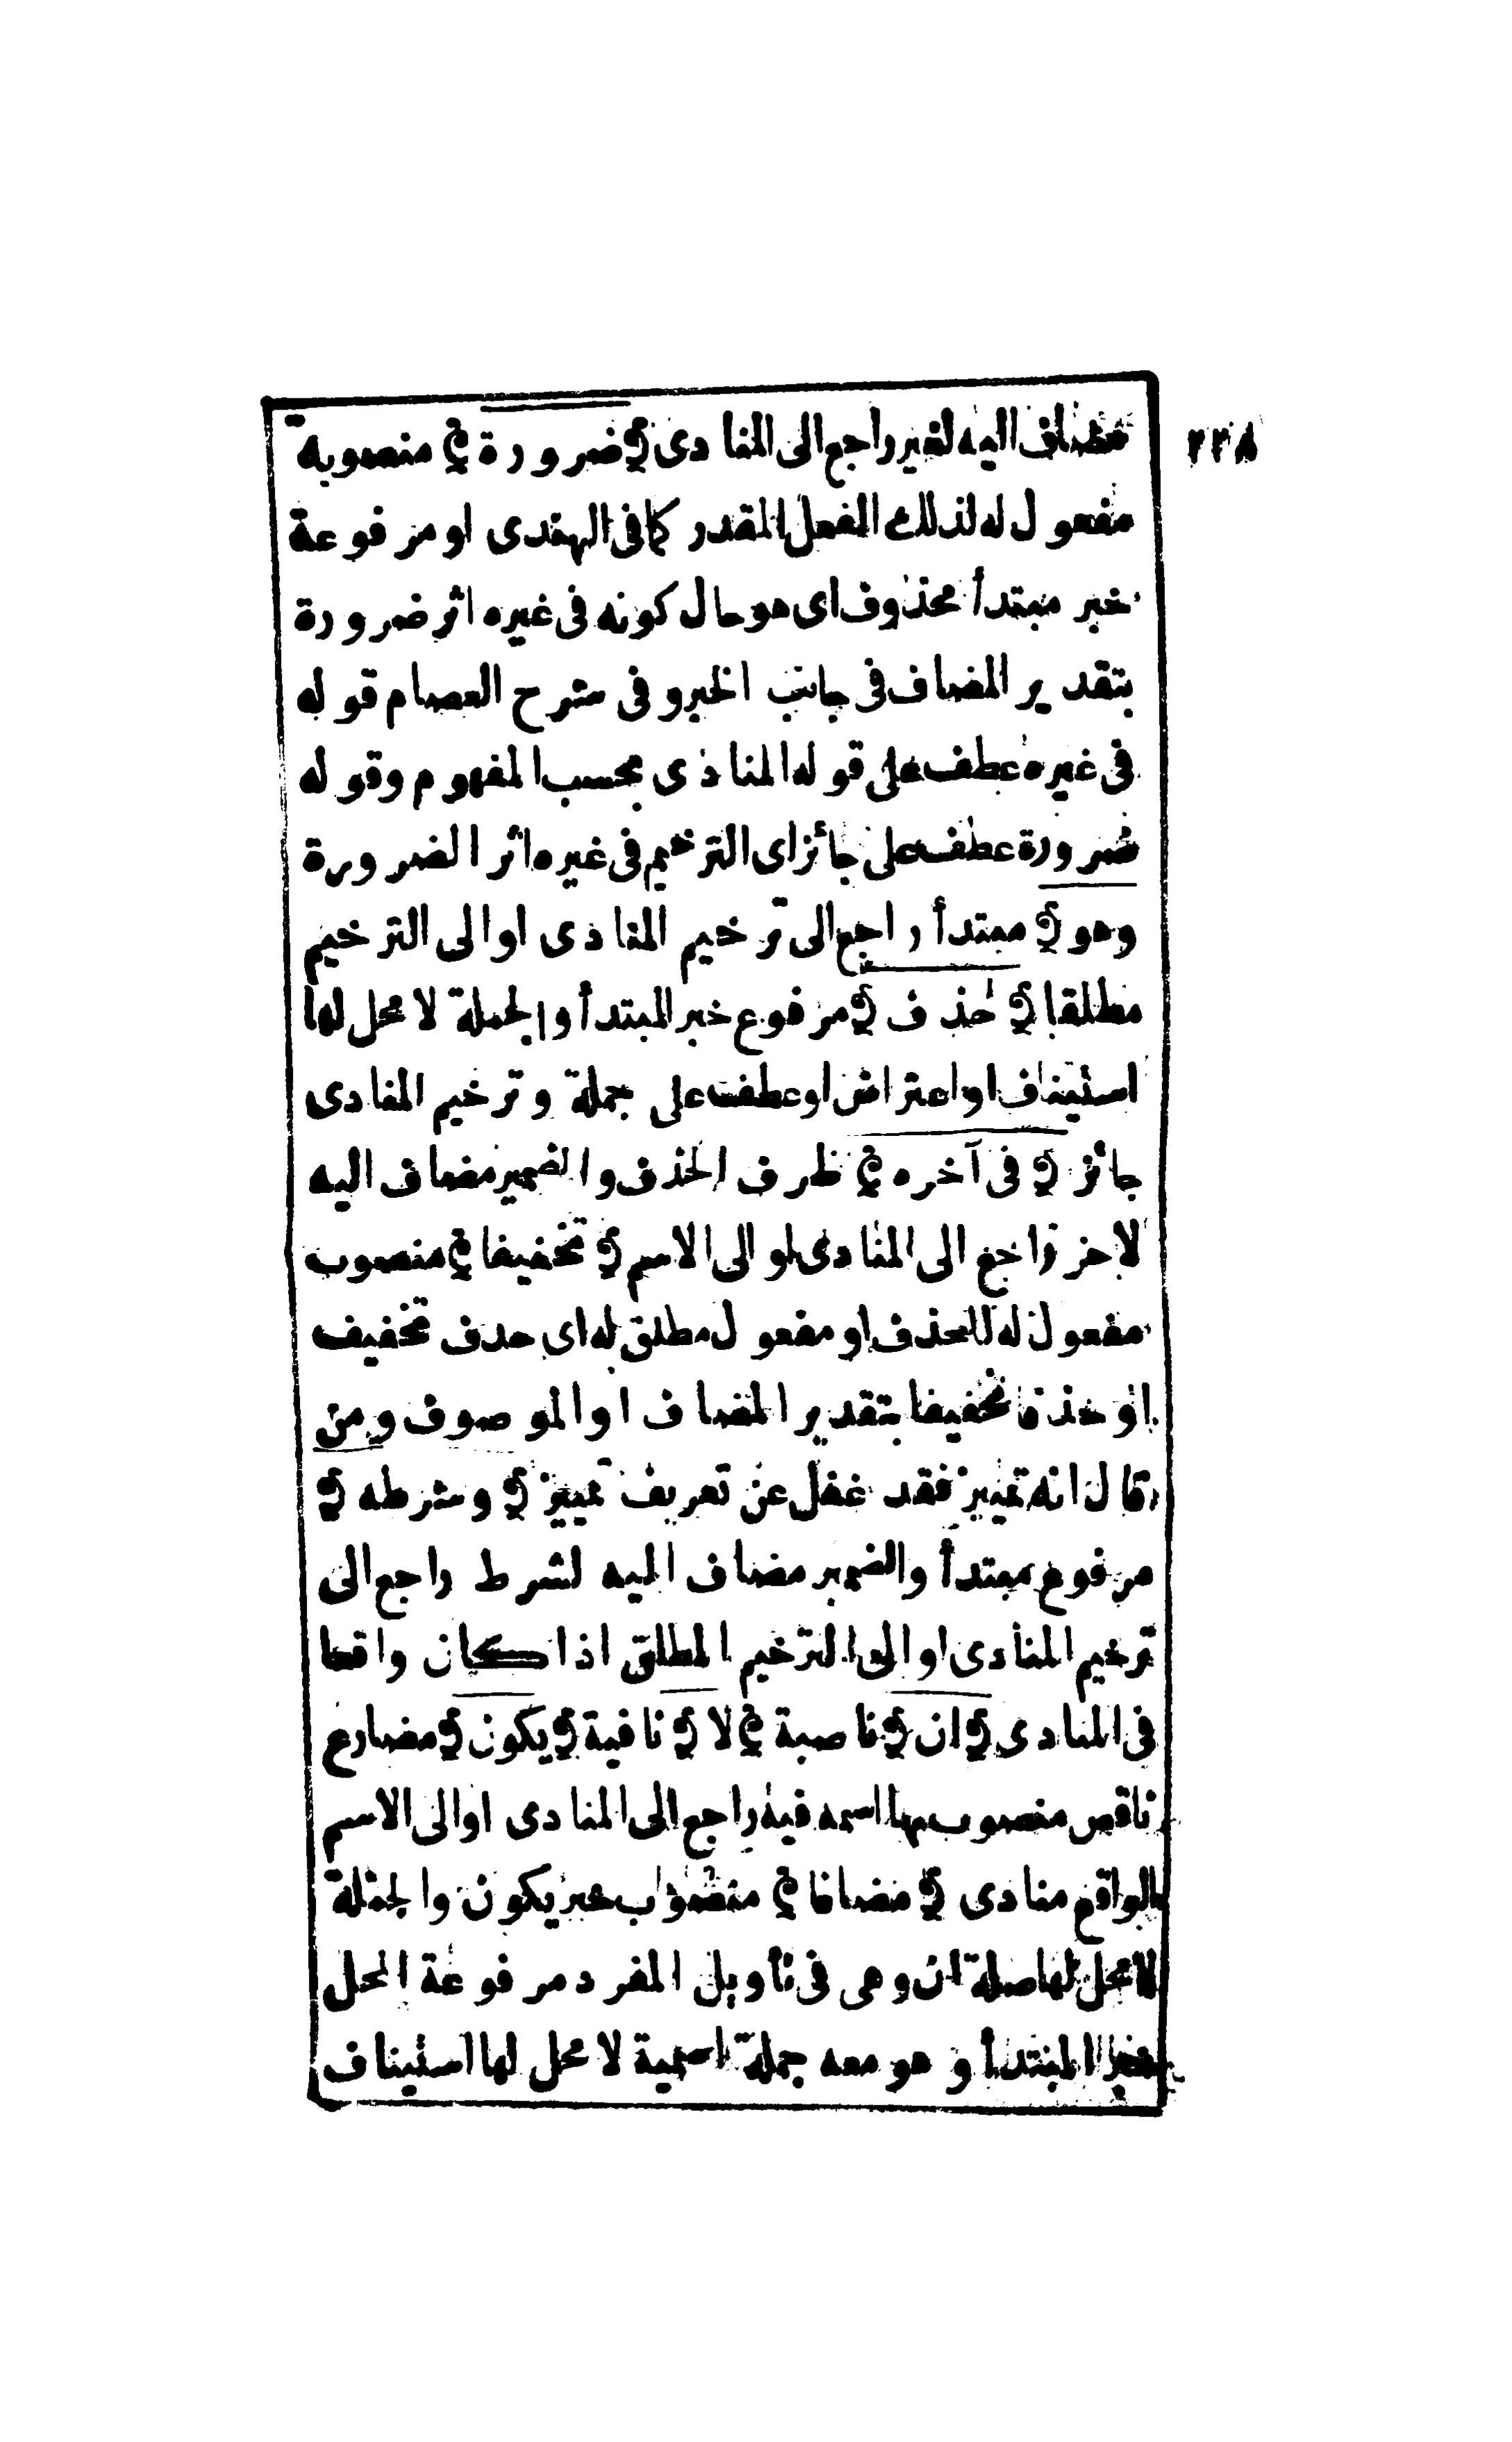 ٢٢٨
مضاف اليه لغير راجع الى المنادى ﴿ ضرورة ﴾ منصوبة
مفعول له لذلك الفعل المقدر كما فى الهندى او مرفوعة
خبر مبتدأ محذوف اى هو حال كونه فى غيره اثر ضرورة
بتقدير المضاف فى جانب الخبر وفى شرح العصام قوله
فى غيره عطف على قوله المنادى بحسب المفهوم وقوله
ضرورة عطف على جائز اى الترخيم فى غيره اثر الضرورة
وهو ﴾ مبتدأ راجع الى ترخيم المنادى او الى الترخيم
مطلقا ﴿ حذف ﴾ مرفوع خبر المبتدأ والجملة لا محل لها
استيناف او اعتراض او عطف على جملة وترخيم المنادى
جائز ﴿ فى آخره ﴾ ظرف الحذف والضمير مضاف اليه
لاخر راجع الى المنادى او الى الاسم ﴿ تخفيفا ﴾ منصوب
مفعول له للحذف او مفعول مطلق له اى حذف تخفيف
او حذفا تخفيفا بتقدير المضاف او الموصوف ومن
قال انه تمييز فقد غفل عن تعريف تمييز ﴿ وشرطه ﴾
مرفوع مبتدأ والضمير مضاف اليه لشرط راجع الى
ترخيم المنادى او الى الترخيم المطلق اذا كان واقعا
فى المنادى ﴿ ان ﴾ ناصبة ﴿ لا ﴾ نافية ﴿ يكون ﴾ مضارع
ناقص منصوب بها اسمه فيه راجع الى المنادى او الى الاسم
الواقع منادى ﴿ مضافا ﴾ منصوب خبر يكون والجملة
لا محل لها صلة ان وهى فى تأويل المفرد مرفوعة المحل
خبر المبتدأ وهو معه جملة اسمية لا محل لها استيناف